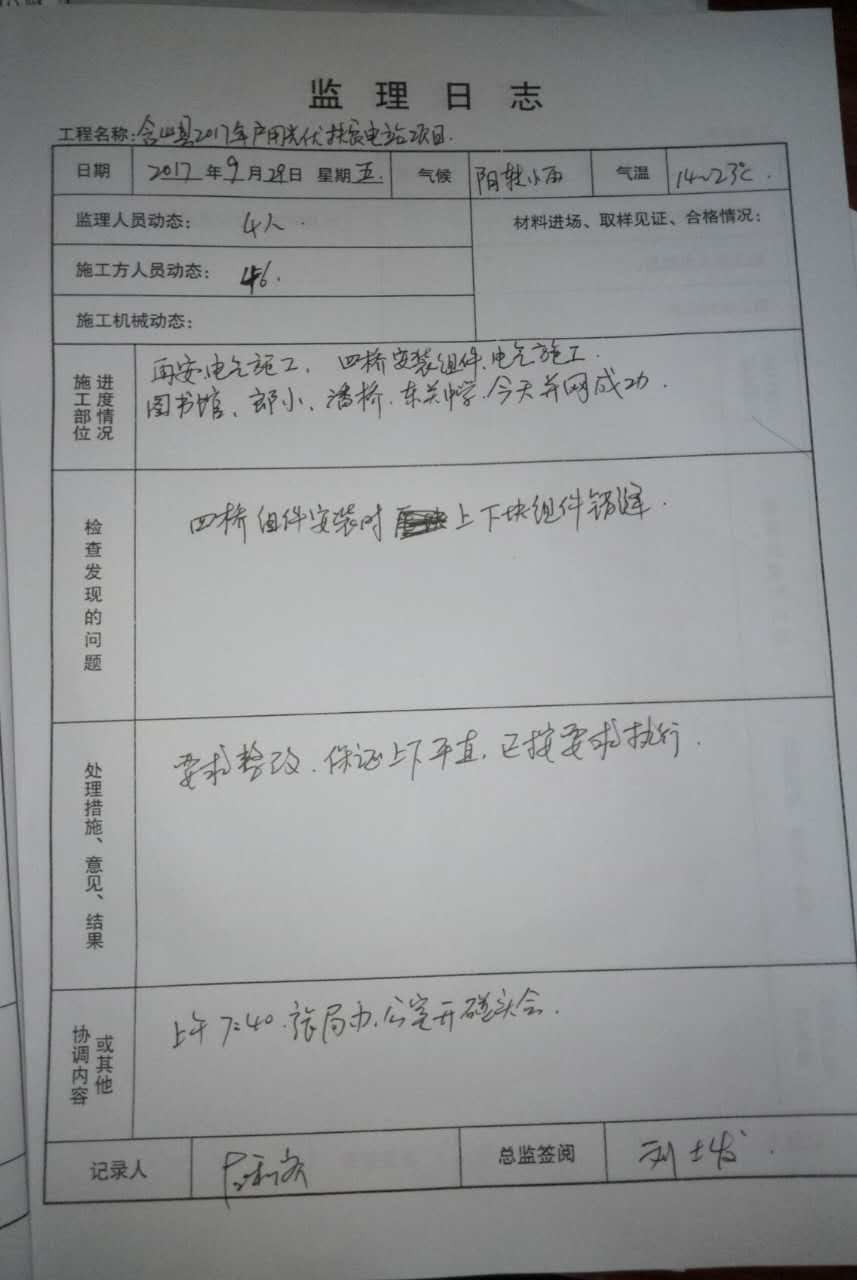 监理日志
工程名称:含山县2017年户用光伏扶贫电站项目.
日期 2017年9月29日 星期五. 气候 阴转小雨 气温 14~23℃.
监理人员动态: 4人. 材料进场、取样见证、合格情况:
施工方人员动态: 46.
施工机械动态:
施工部位 进度情况
电气施工. 四桥安装组件、电气施工.
图书馆、郎小、潘桥、东关中学、今天并网成功.
检查发现的问题
四桥组件安装时 上下块组件错缝.
处理措施、意见、结果
要求整改、保证上下平直,已按要求执行.
协调内容 或其他
上午7:40.张局办公室开碰头会.
记录人 总监签阅